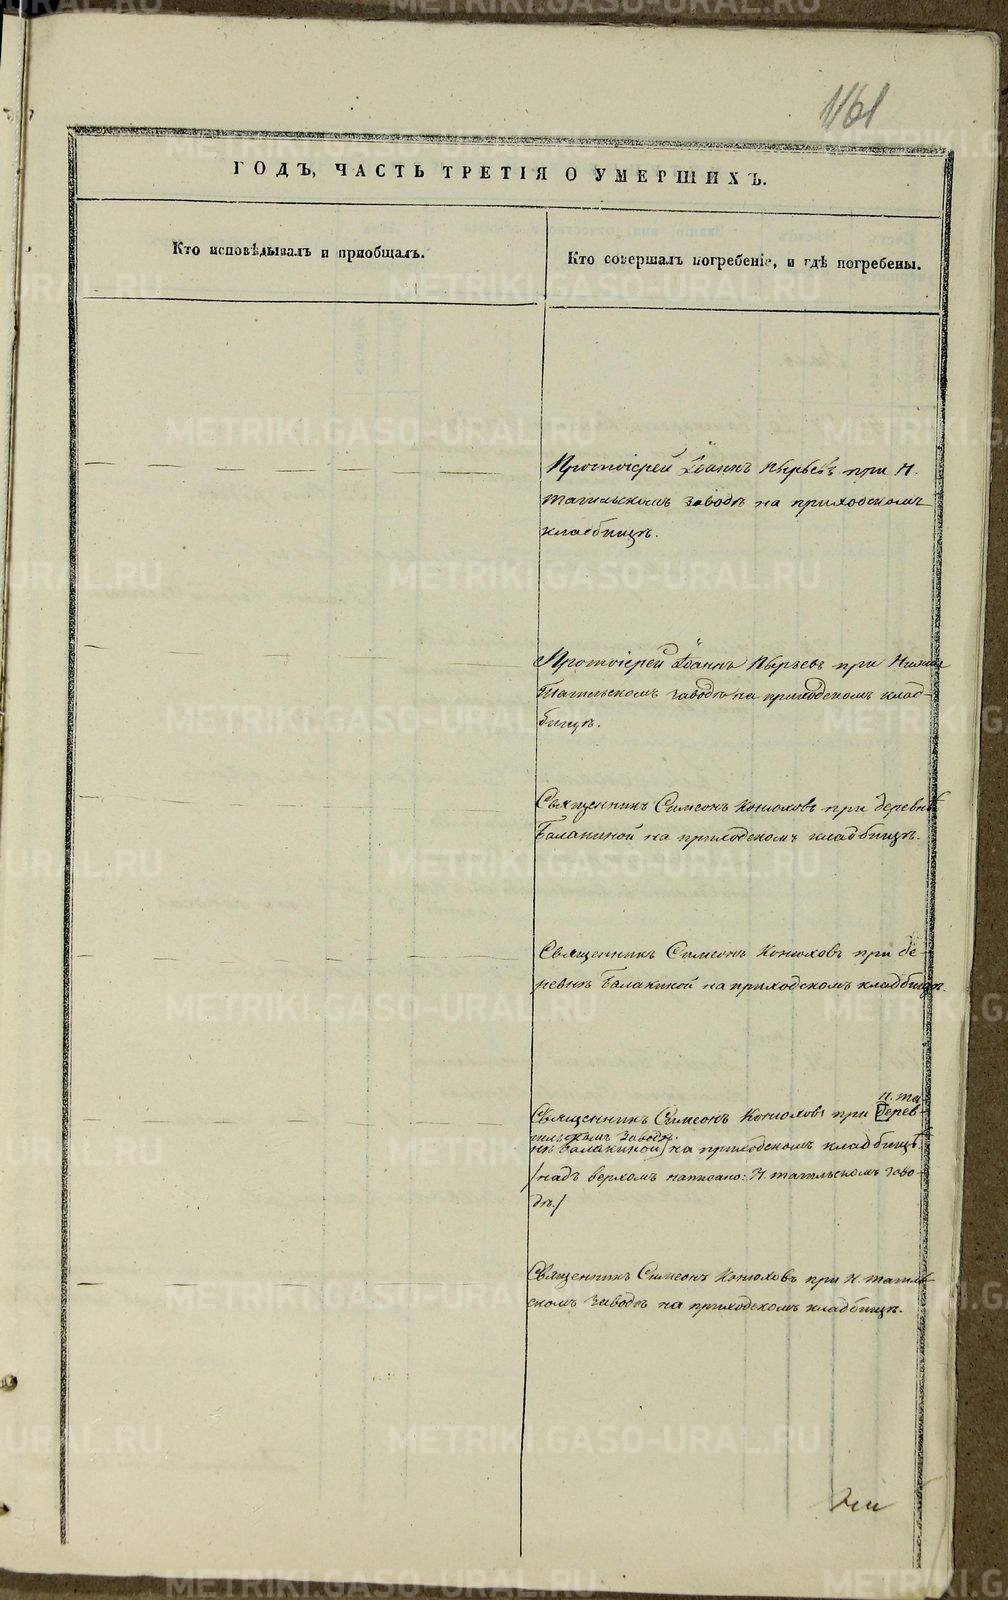 1161
ГОДЪ, ЧАСТЬ ТРЕТІЯ О УМЕРШИХЪ.
Кто исповѣдывалъ и пріобщалъ.
Кто совершалъ погребеніе, и гдѣ погребены.
Протоіерей Іоаннъ Пырьевъ при Н.
тагильскомъ заводѣ на приходскомъ
кладбищѣ.
Протоіерей Іоаннъ Пырьевъ при Нижне
Тагильскомъ заводѣ на приходскомъ клад-
бищѣ.
Священникъ Симеонъ Конюховъ при деревнѣ
Балакиной на приходскомъ кладбищѣ.
Священникъ Симеонъ Конюховъ при де-
ревнѣ Балакиной на приходскомъ кладбищѣ.
Н. та-
Священникъ Симеонъ Конюховъ при дерев-
гильскомъ заводѣ.
нѣ Балакиной / на приходскомъ кладбищѣ.
/надъ верхомъ написано: Н. тагильскомъ заво-
дѣ./
Священникъ Симеонъ Конюховъ при Н. тагиль-
скомъ заводѣ на приходскомъ кладбищѣ.
METRIKI.GASO-URAL.RU